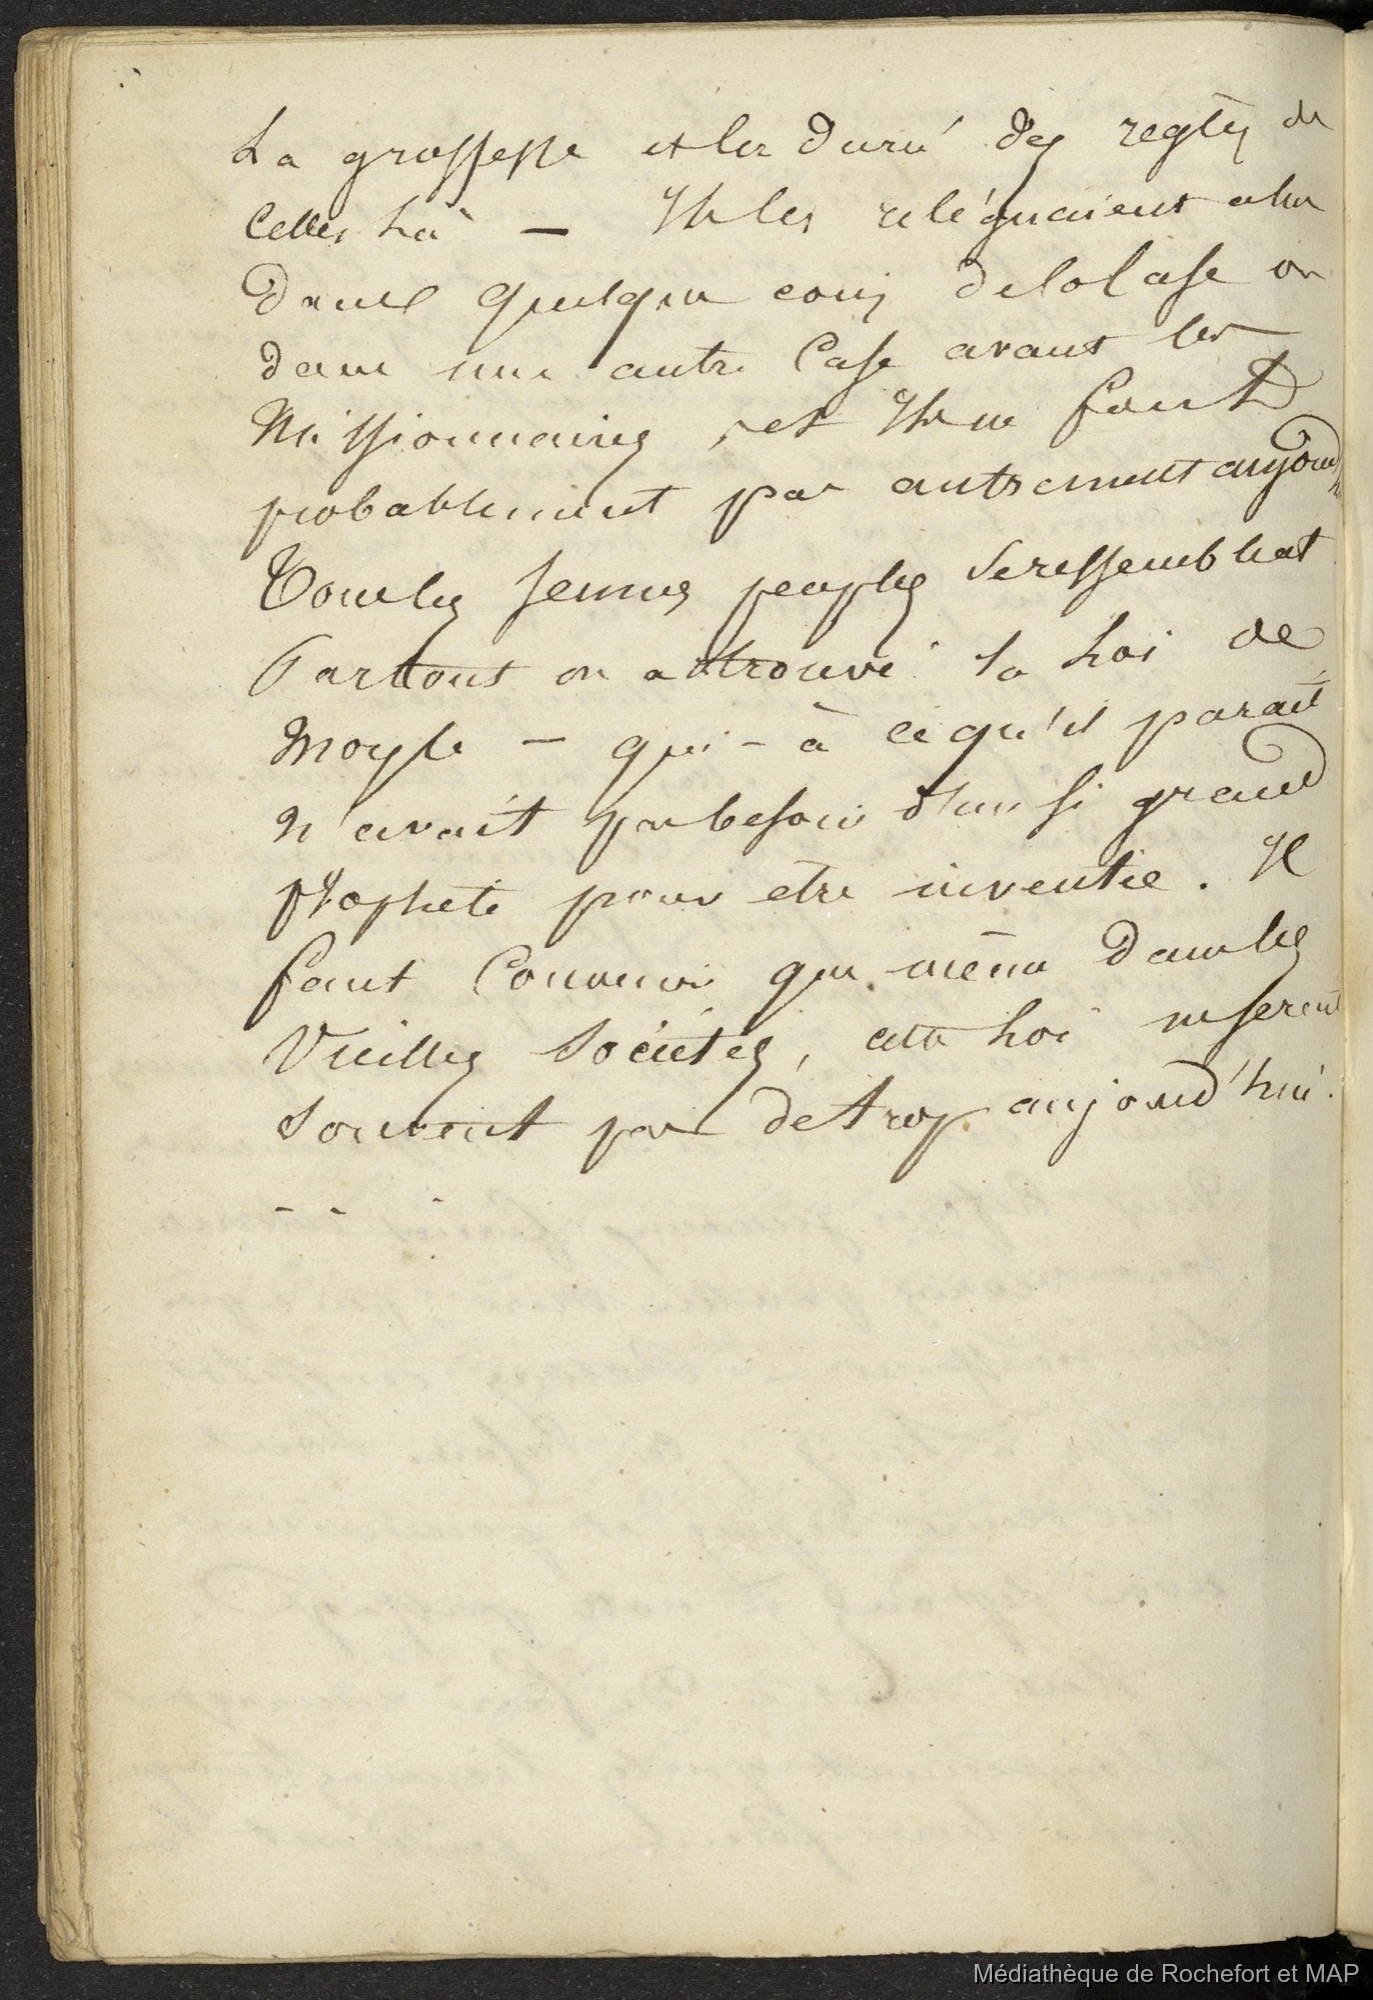 La grossesse et la durée des regles de
Celles là — Ils les reléguaient alors
dans quelque coin de la Case ou
dans une autre Case avant les
Missionnaires, et Ils ne font
probablement pas autrement aujourd'h
Tous les jeunes peuples se ressemblent
Partout on a trouvé la Loi de
Moyse — qui - à ce qu'il parait
n'avait pas besoin d'un si grand
Prophete pour etre inventée. Il
faut Convenir que même dans les
Vieilles Sociétés, cette Loi ne serait
souvent pas de trop aujourd'hui.
- - -
Médiathèque de Rochefort et MAP